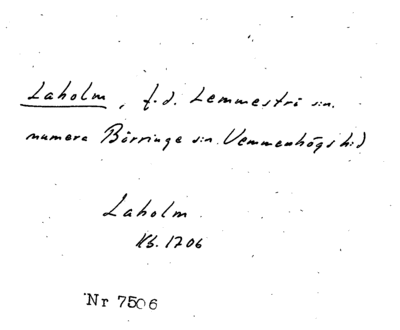 Laholm, f.d. Lemmeströ sn.
numera Börringe sn. Vemmenhögs hd
Laholm.
Kb. 1706
Nr 7506